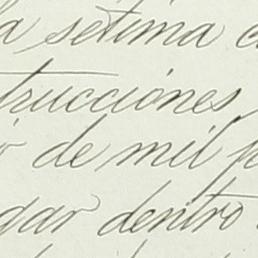 a sétima
trucciones
o de mil
gar dentro